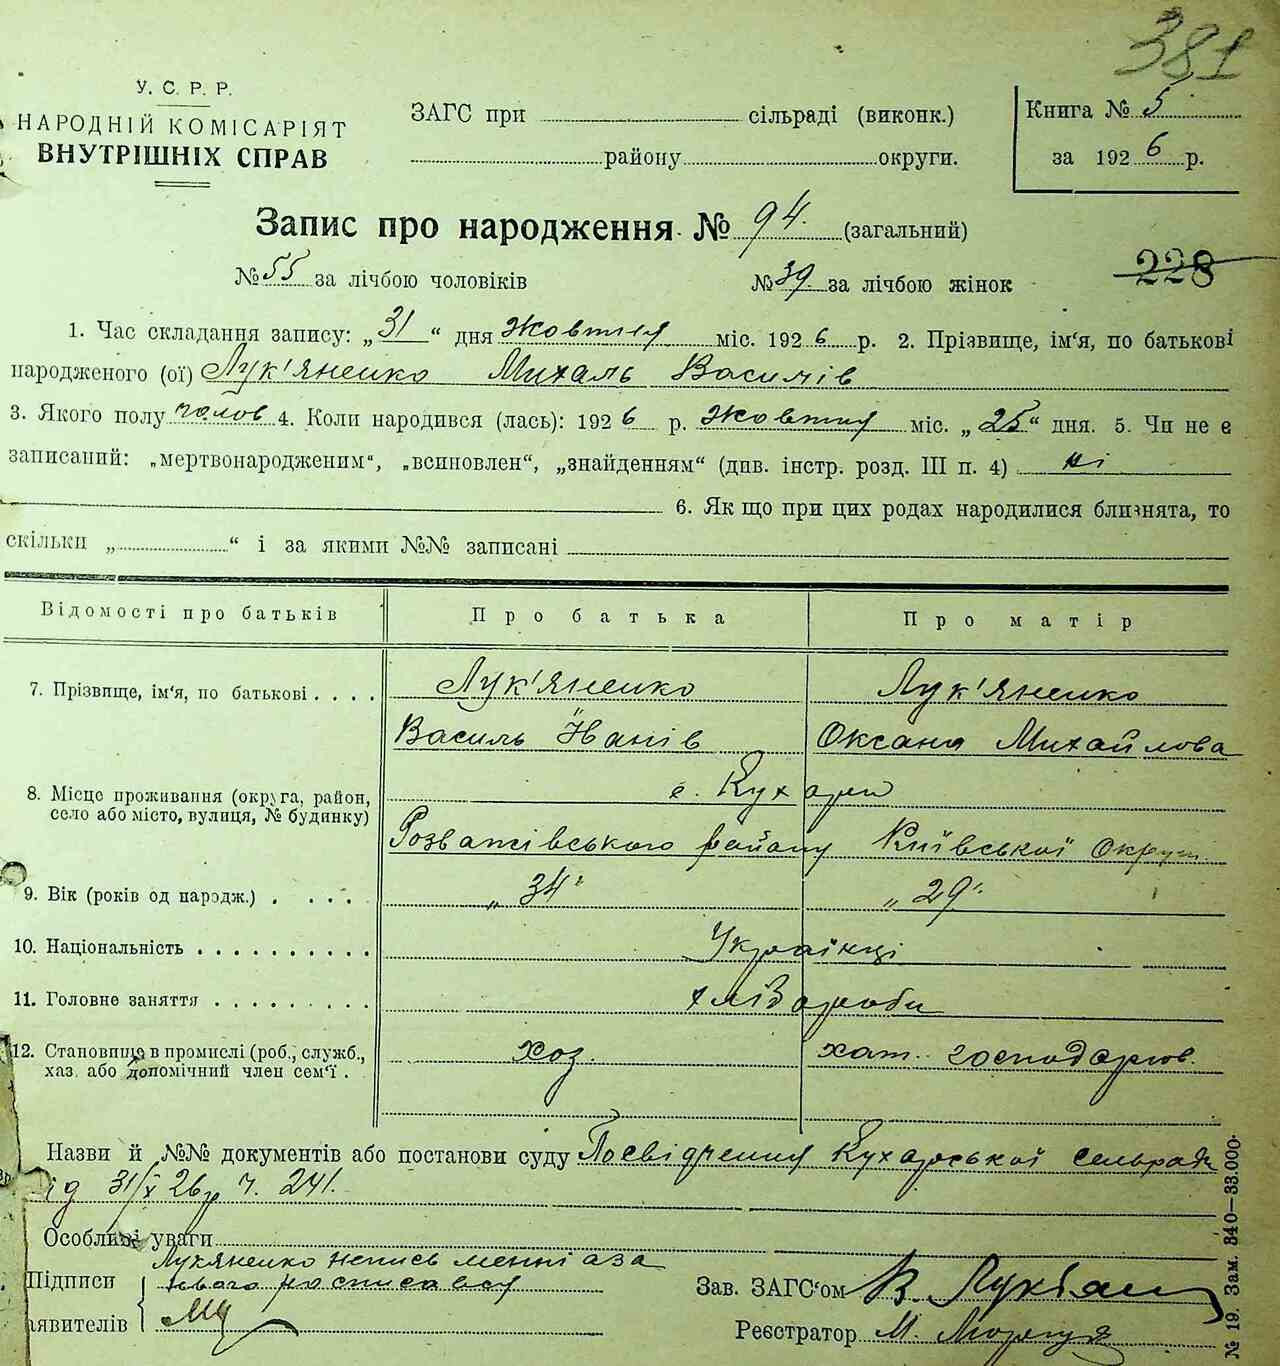 381
У. С. Р. Р.
НАРОДНІЙ КОМІСАРІЯТ
ВНУТРІШНІХ СПРАВ
ЗАГС при сільраді (виконк.)
району округи.
Книга № 5
за 1926 р.
Запис про народження № 94. (загальний)
№ 55 за лічбою чоловіків № 39 за лічбою жінок
228
1. Час складання запису: „31“ дня Жовтня міс. 1926 р. 2. Прізвище, ім'я, по батькові
народженого (ої) Лук'яненко Михаль Василів
3. Якого полу чолов 4. Коли народився (лась): 1926 р. Жовтня міс. „25“ дня. 5. Чи не є
записаний: „мертвонародженим“, „всиновлен“, „знайденням“ (див. інстр. розд. III п. 4) ні
6. Як що при цих родах народилися близнята, то
скільки „ “ і за якими №№ записані
Відомості про батьків Про батька Про матір
7. Прізвище, ім‘я, по батькові . . . . Лук'яненко Лук'яненко
Василь Іванів Оксана Михайлова
8. Місце проживання (округа, район, с. Кухари
село або місто, вулиця, № будинку) Розважівського району Київської Округи
9. Вік (років од народж.) . . . . . „34“ „29“
10. Національність . . . . . . . . . . Українці
11. Головне заняття . . . . . . . . . хлібороби
12. Становище в промислі (роб., служб., хоз. хат. господарюв.
хаз. або допомічний член сем‘ї .
Назви й №№ документів або постанови суду Посвідчення Кухарської сельради
від 31/X 26 р ч. 241.
Особливі уваги
Лук'яненко неписьменні а за
Підписи нього росписався
заявителів
Зав. ЗАГС‘ом В Лук'ян
Реєстратор М.
№ 19. Зам. 840—33.000.